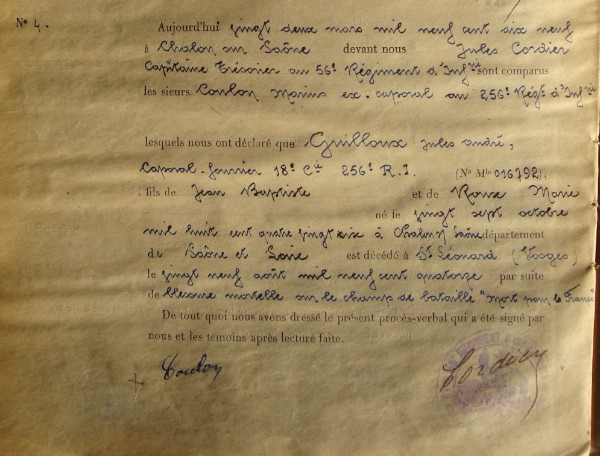 N° 4.
Aujourd'hui vingt deux mars mil neuf cent dix neuf
à Chalon sur Saône devant nous Jules Cordier
Capitaine Trésorier au 56e Régiment d'Infrie sont comparus
les sieurs Coulon Marius ex-caporal au 256e Régt d'Infrie
lesquels nous ont déclaré que Guilloux Jules André,
Caporal-fourrier 18e Cie 256e R.I. (No Mle 016792)
fils de Jean Baptiste et de Roux Marie
né le vingt sept octobre
mil huit cent quatre vingt six à Chalon s/ Saône département
de Saône et Loire est décédé à St Léonard (Vosges)
le vingt neuf août mil neuf cent quatorze par suite
de blessure mortelle sur le champ de bataille "Mort pour la France"
De tout quoi nous avons dressé le présent procès-verbal qui a été signé par
nous et les témoins après lecture faite.
Coulon Cordier